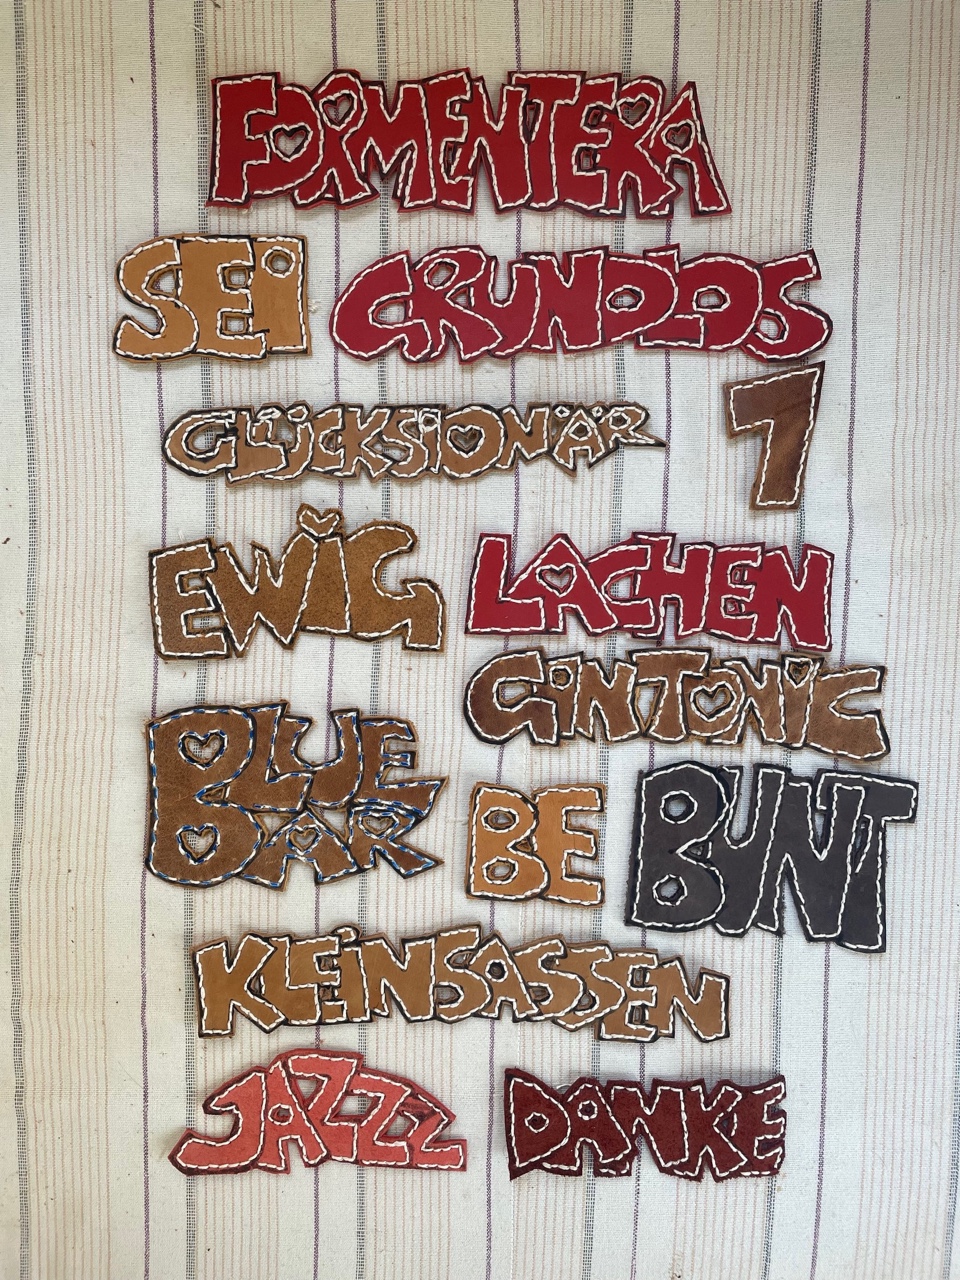 FORMENTERA
SEi GRUNDLOS
GLÜCKSiONÄR 1
EWiG LACHEN
GiNTONiC
BLUE
BAR
BE BUNT
KLEiNSASSEN
JAZZZ DANKE